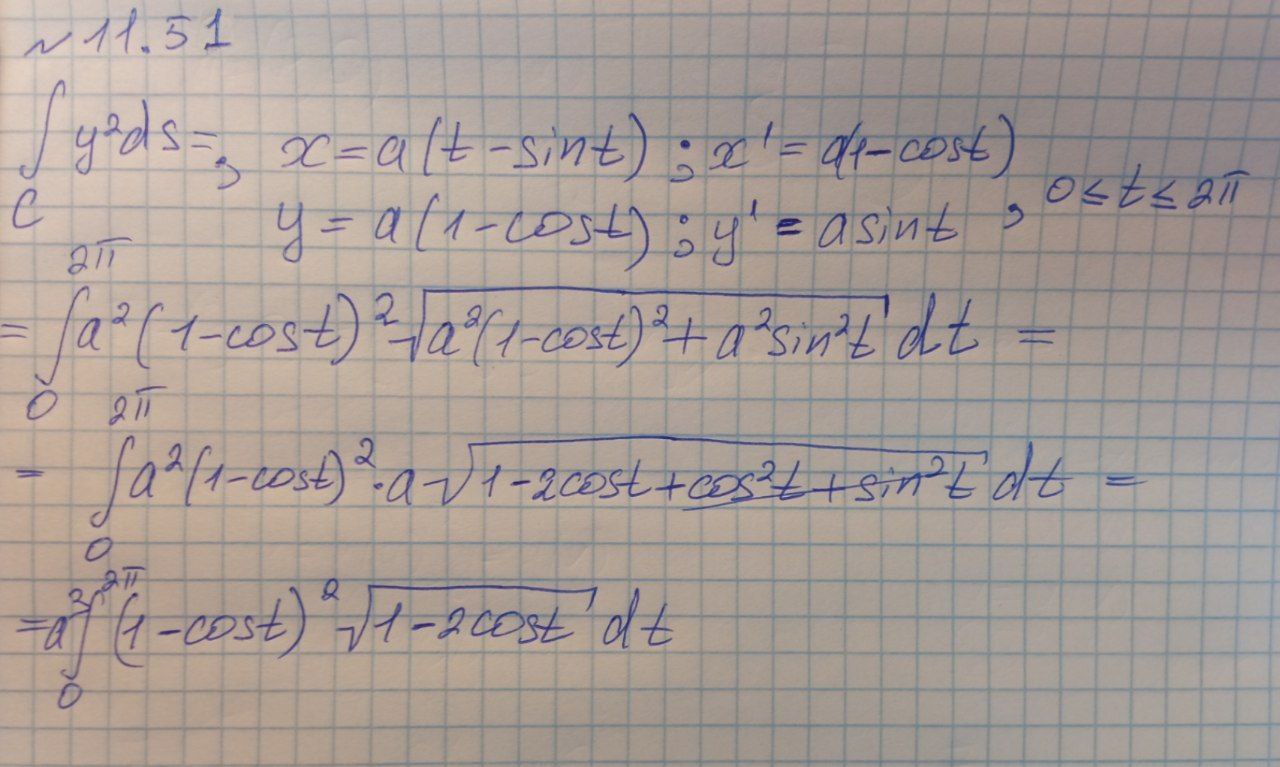 ~11.51
∫_C y²ds=, x=a(t-sint); x'=a(1-cost)
y=a(1-cost); y'=asint, 0≤t≤2π
=∫_0^{2π} a²(1-cost)²√(a²(1-cost)²+a²sin²t) dt =
= ∫_0^{2π} a²(1-cost)²·a√(1-2cost+cos²t+sin²t) dt =
=a³∫_0^{2π} (1-cost)²√(1-2cost) dt